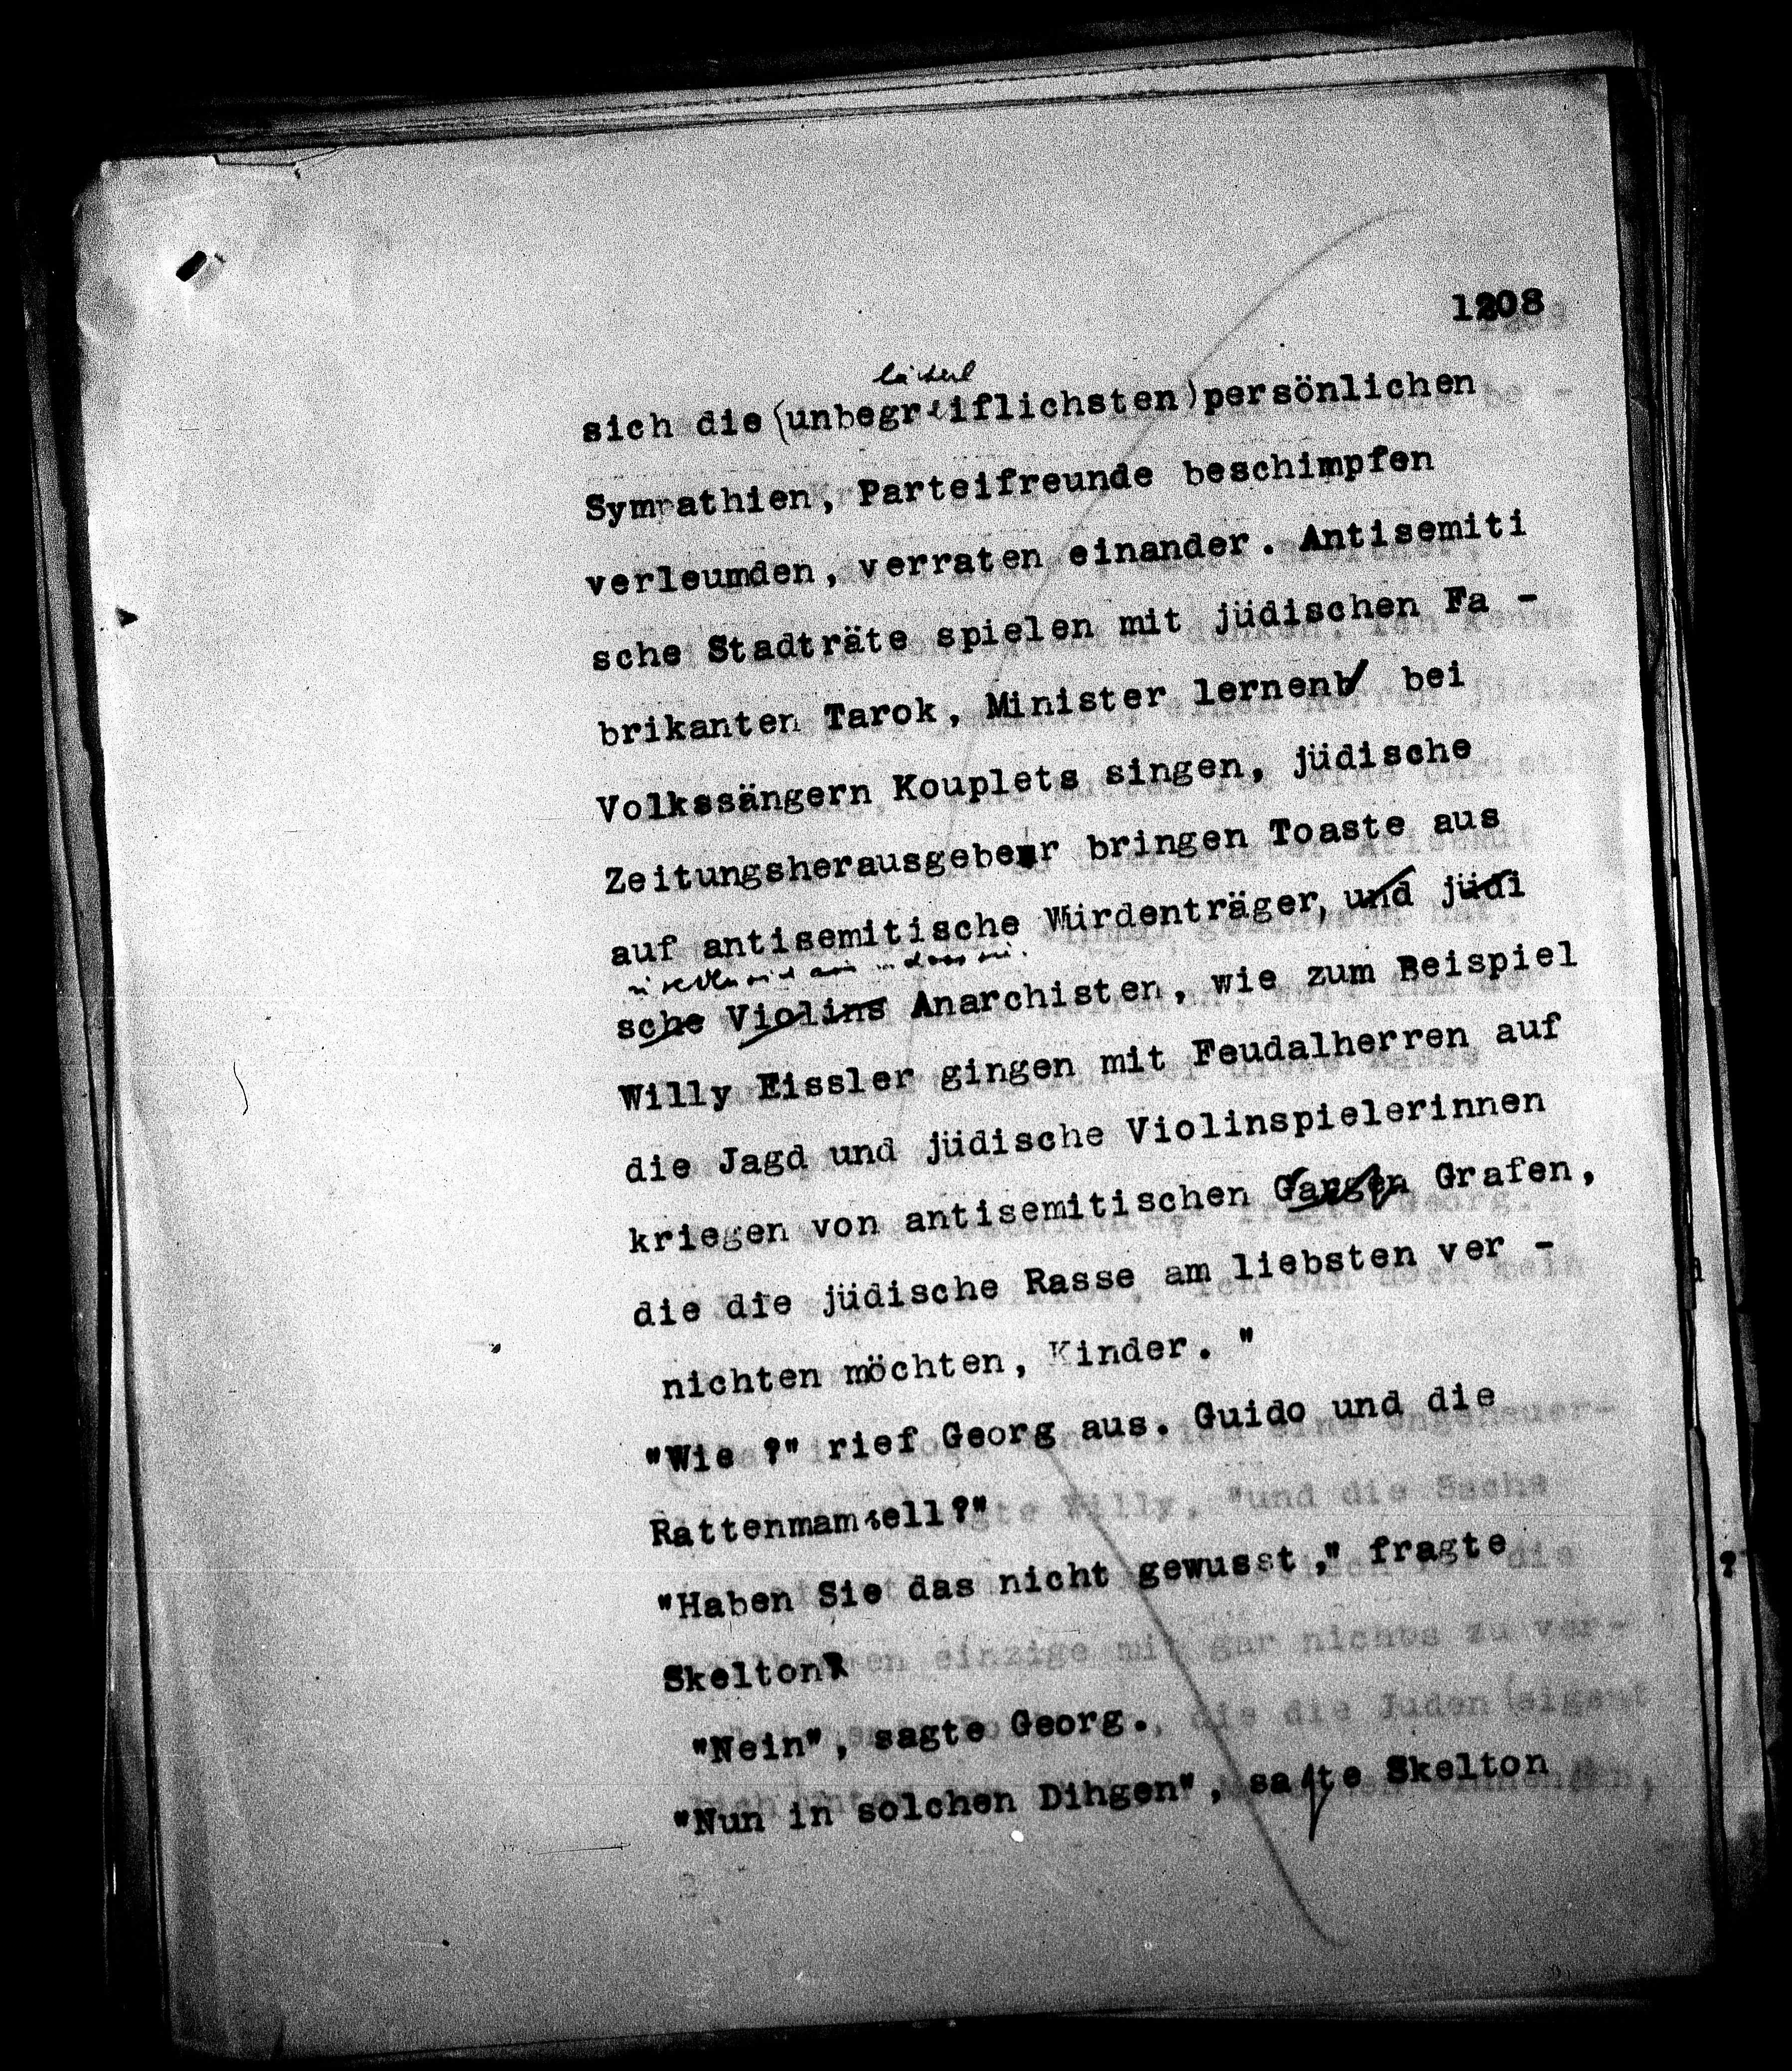 1208
sich die (unbegreiflichsten) persönlichen
Sympathien, Parteifreunde beschimpfen
verleumden, verraten einander. Antisemiti
sche Stadträte spielen mit jüdischen Fa -
brikanten Tarok, Minister lernen bei
Volkssängern Kouplets singen, jüdische
Zeitungsherausgeber bringen Toaste aus
auf antisemitische Würdenträger, und jüdi
sche Violins Anarchisten, wie zum Beispiel
Willy Eissler gingen mit Feudalherren auf
die Jagd und jüdische Violinspielerinnen
kriegen von antisemitischen Grafen,
die die jüdische Rasse am liebsten ver -
nichten möchten, Kinder. "
"Wie ?" rief Georg aus. Guido und die
Rattenmamsell?"
"Haben Sie das nicht gewusst," fragte
Skelton
"Nein", sagte Georg.
"Nun in solchen Dihgen", sagte Skelton